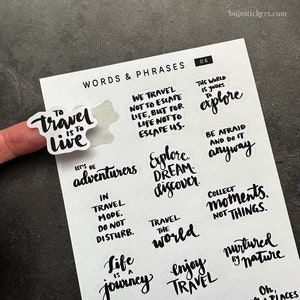 bujostickers.com
WORDS & PHRASES
06
TO
travel
IS TO
live
WE TRAVEL
NOT TO ESCAPE
LIFE, BUT FOR
LIFE NOT TO
ESCAPE US.
THE WORLD
IS YOURS TO
explore
LET'S BE
adventurers
Explore.
DREAM.
discover.
BE AFRAID
AND DO IT
anyway
IN
TRAVEL
MODE.
DO NOT
DISTURB.
TRAVEL
THE
world
COLLECT
moments,
NOT THINGS.
Life
IS A
journey
Enjoy
TRAVEL
nurtured
BY
nature
Oh,
PLACES